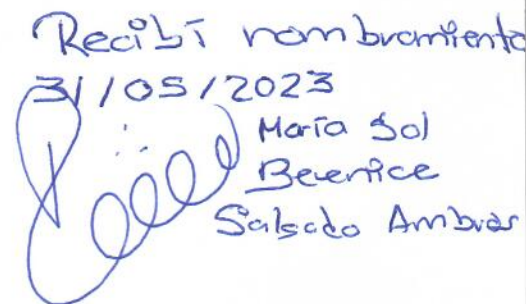 Recibí nombramiento
31/05/2023
María Sol
Berenice
Salgado Ambros